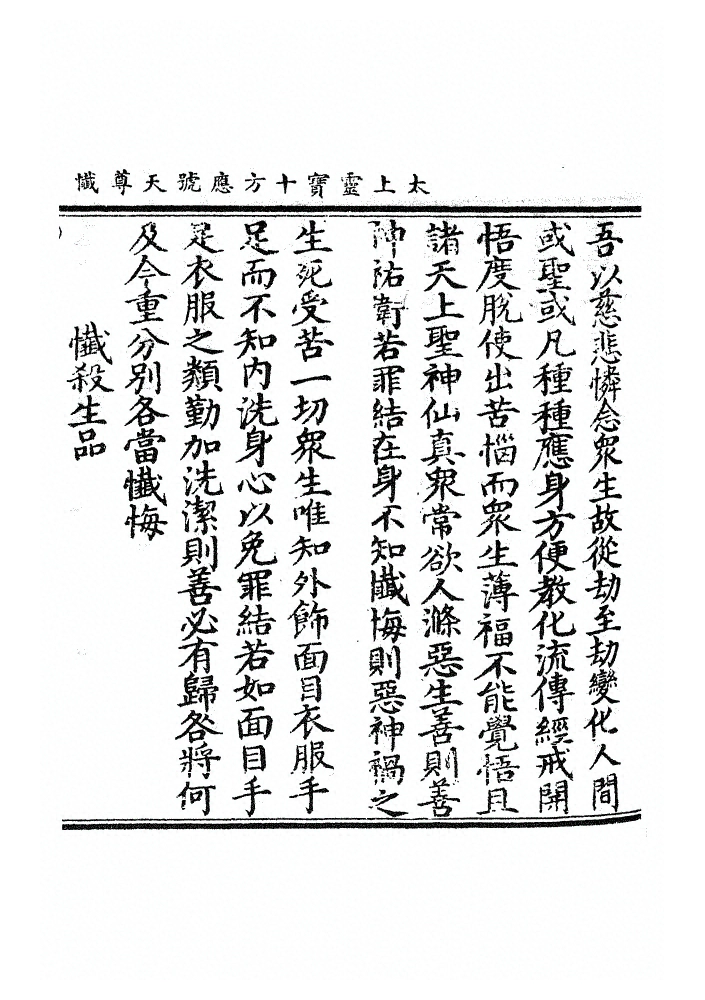 太上靈寶十方應號天尊懺
吾以慈悲憐念眾生故從劫至劫變化人間
或聖或凡種種應身方便教化流傳經戒開
悟度脫使出苦惱而眾生薄福不能覺悟且
諸天上聖神仙真眾常欲人滌惡生善則善
神祐衛若罪結在身不知懺悔則惡神禍之
生死受苦一切眾生唯知外飾面目衣服手
足而不知內洗身心以免罪結若如面目手
足衣服之類勤加洗潔則善必有歸咎將何
及今重分別各當懺悔
懺殺生品